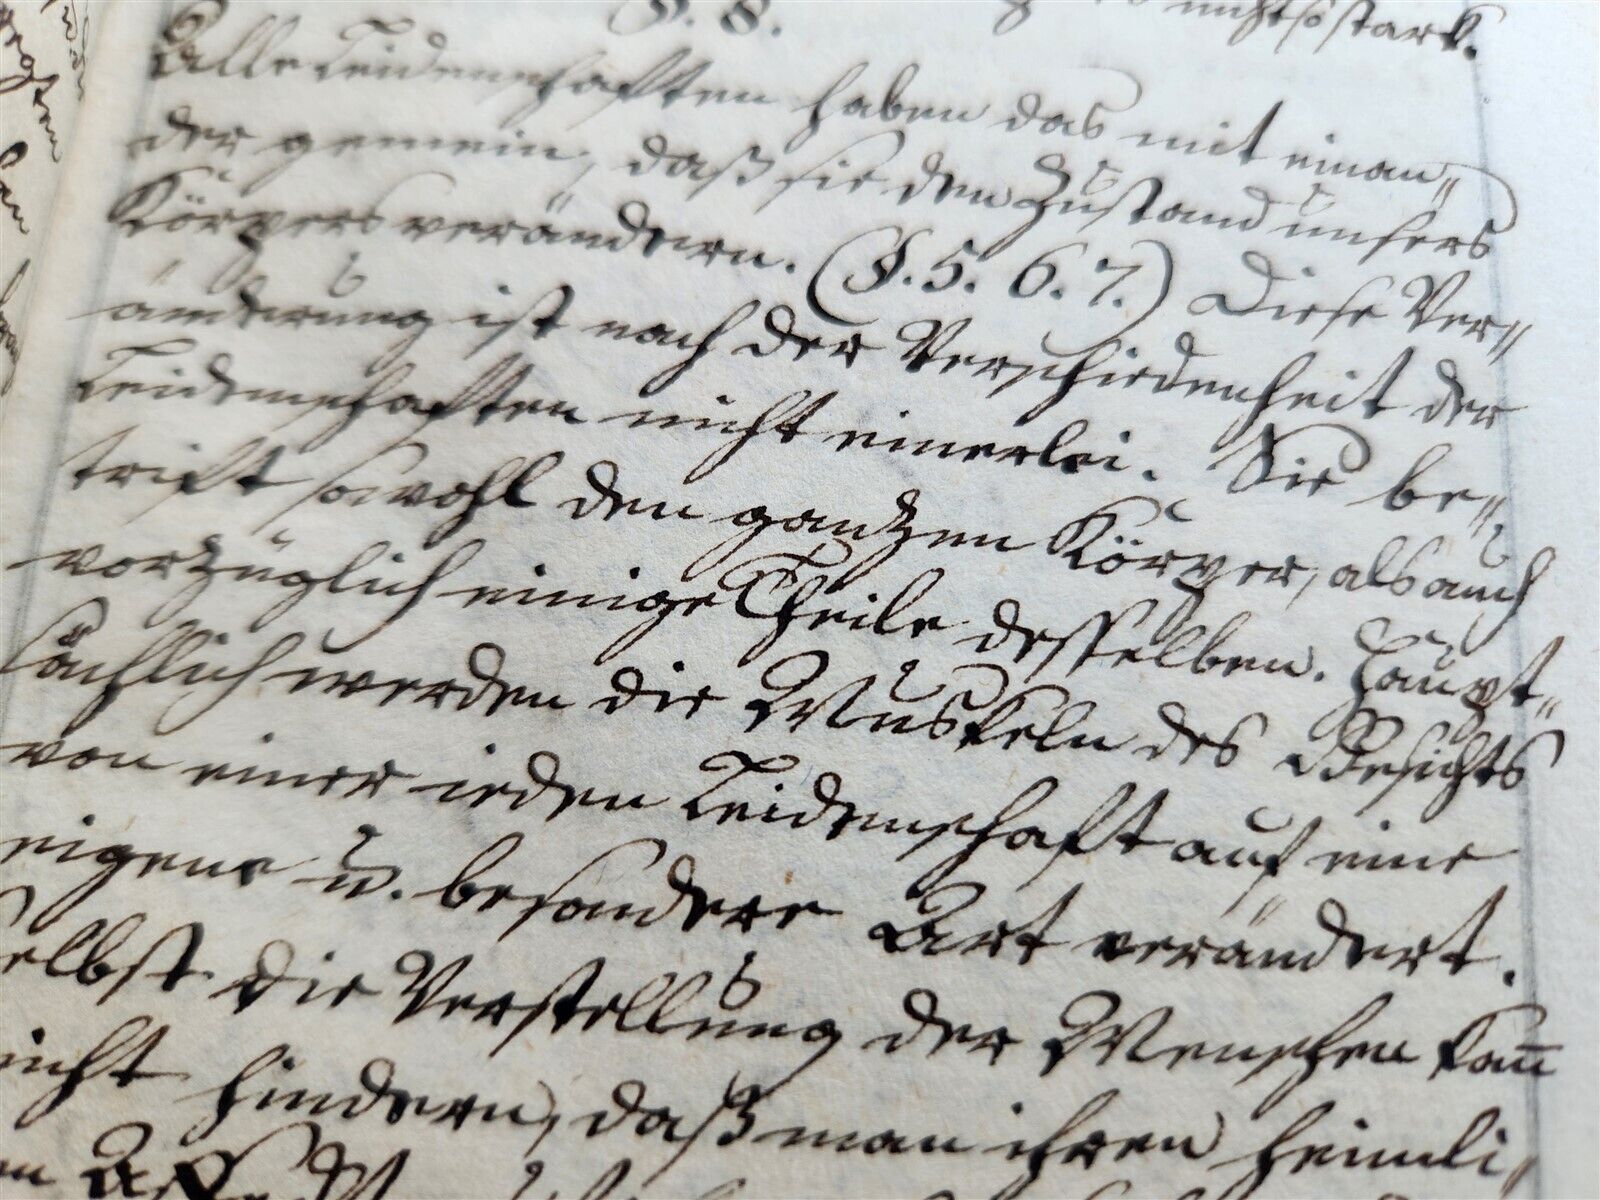 nicht so stark.
§. 8.
Alle Leidenschaften haben das mit einan„
der gemein, daß sie den Zustand unsers
Körpers verändern. (§. 5. 6. 7.) Diese Ver„
änderung ist nach der Verschiedenheit der
Leidenschaften nicht einerlei. Sie be„
trift sowohl den gantzen Körper, als auch
vorzüglich einige Theile desselben. Haupt„
sächlich werden die Muskeln des Gesichts
von einer ieden Leidenschaft auf eine
eigene u. besondere Art verändert.
elbst die Verstellung der Menschen kan̅
nicht hindern, daß man ihren heimli„